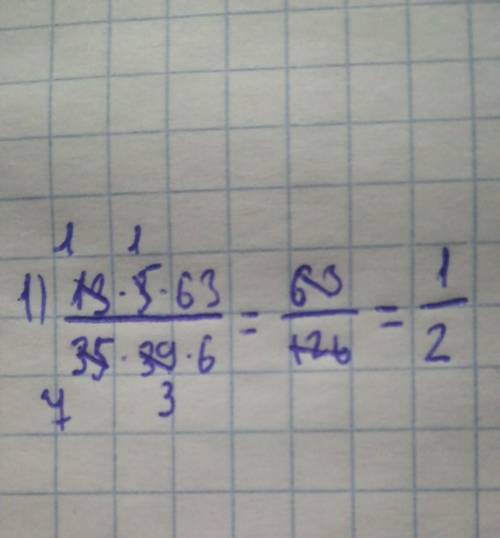 1 1
1) 13·5·63 / 35·39·6 = 63 / 126 = 1 / 2
7 3